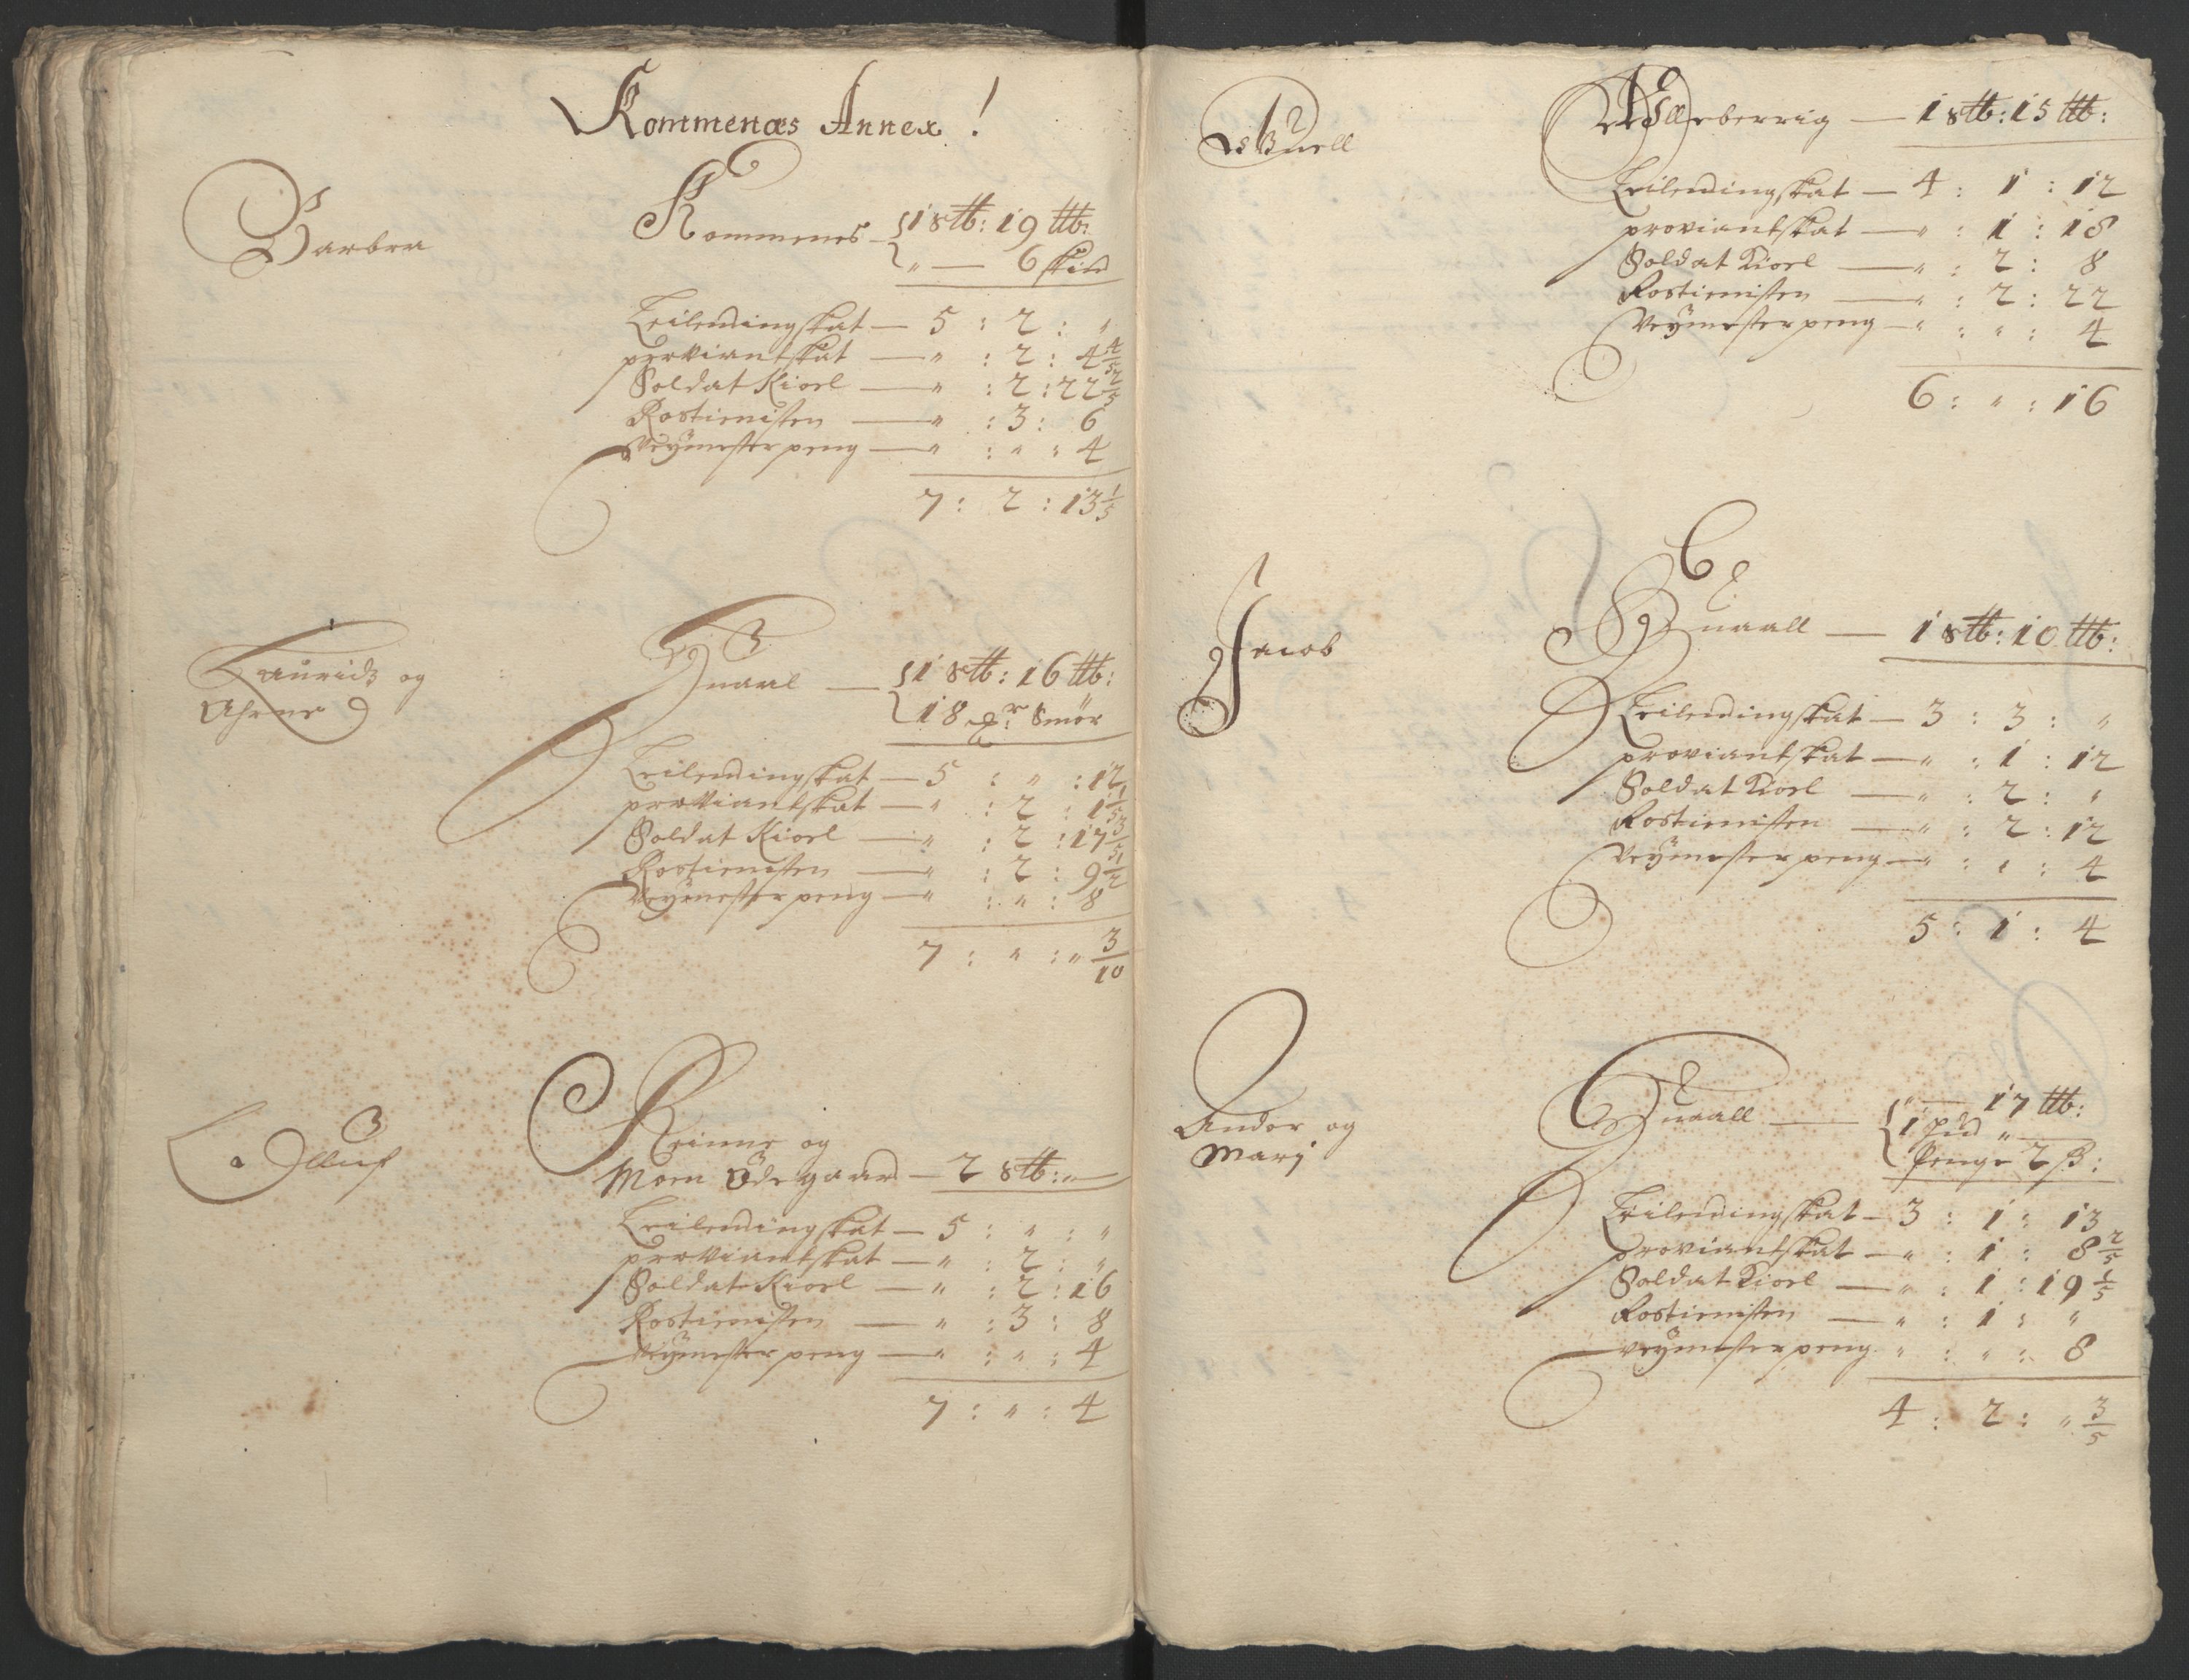 Kommenæs Annex !
Barbra
Kommenes - 1 stb: 19 ttb:
" — 6 skin
Leilendingskat — 5 : 2 : "
proviantskat — " : 2 : 4 4/5
Soldat Kioel — " : 2 : 22 2/5
Rostienisten — " : 3 : 6
Veÿmester peng — " : " : 4
7 : 2 : 13 1/5
Lauridz og
Ahrne
Quaal — 1 stb: 16 ttb:
18 Smör
Leilendingskat — 5 : " : 12
proviantskat — " : 2 : 1 1/5
Soldat Kioel — " : 2 : 17 3/5
Rostienisten — " : 2 : 9 1/2
Veÿmester peng — " : " : 8
7 : " : " 3/10
Olluf
Reinne og
Moen Ödegaard — 2 stb: "
Leilendingskat — 5 : " : "
proviantskat — " : 2 : "
Soldat Kioel — " : 2 : 16
Rostienisten — " : 3 : 8
Veÿmester peng — " : " : 4
7 : " : 4
Eskuell
Olleberrig — 1 stb: 15 ttb:
Leilendingskat — 4 : 1 : 12
proviantskat — " : 1 : 18
Soldat Kioel — " : 2 : 8
Rostienisten — " : 2 : 22
Veÿmester peng — " : " : 4
6 : " : 16
Jacob
Quaall — 1 stb: 10 ttb:
Leilendingskat — 3 : 3 : "
proviantskat — " : 1 : 12
Soldat Kioel — " : 2 : "
Rostienisten — " : 2 : 12
Veÿmester peng — " : " : 4
5 : 1 : 4
Andor og
Marj
Quaall — " — 17 ttb:
1 hud "
Penge 2 ß:
Leilendingskat — 3 : 1 : 13
proviantskat — " : 1 : 8 2/5
Soldat Kioel — " : 1 : 19 1/5
Rostienisten — " : 1 : "
Veÿmester peng " : " : 8
4 : 2 : " 3/5